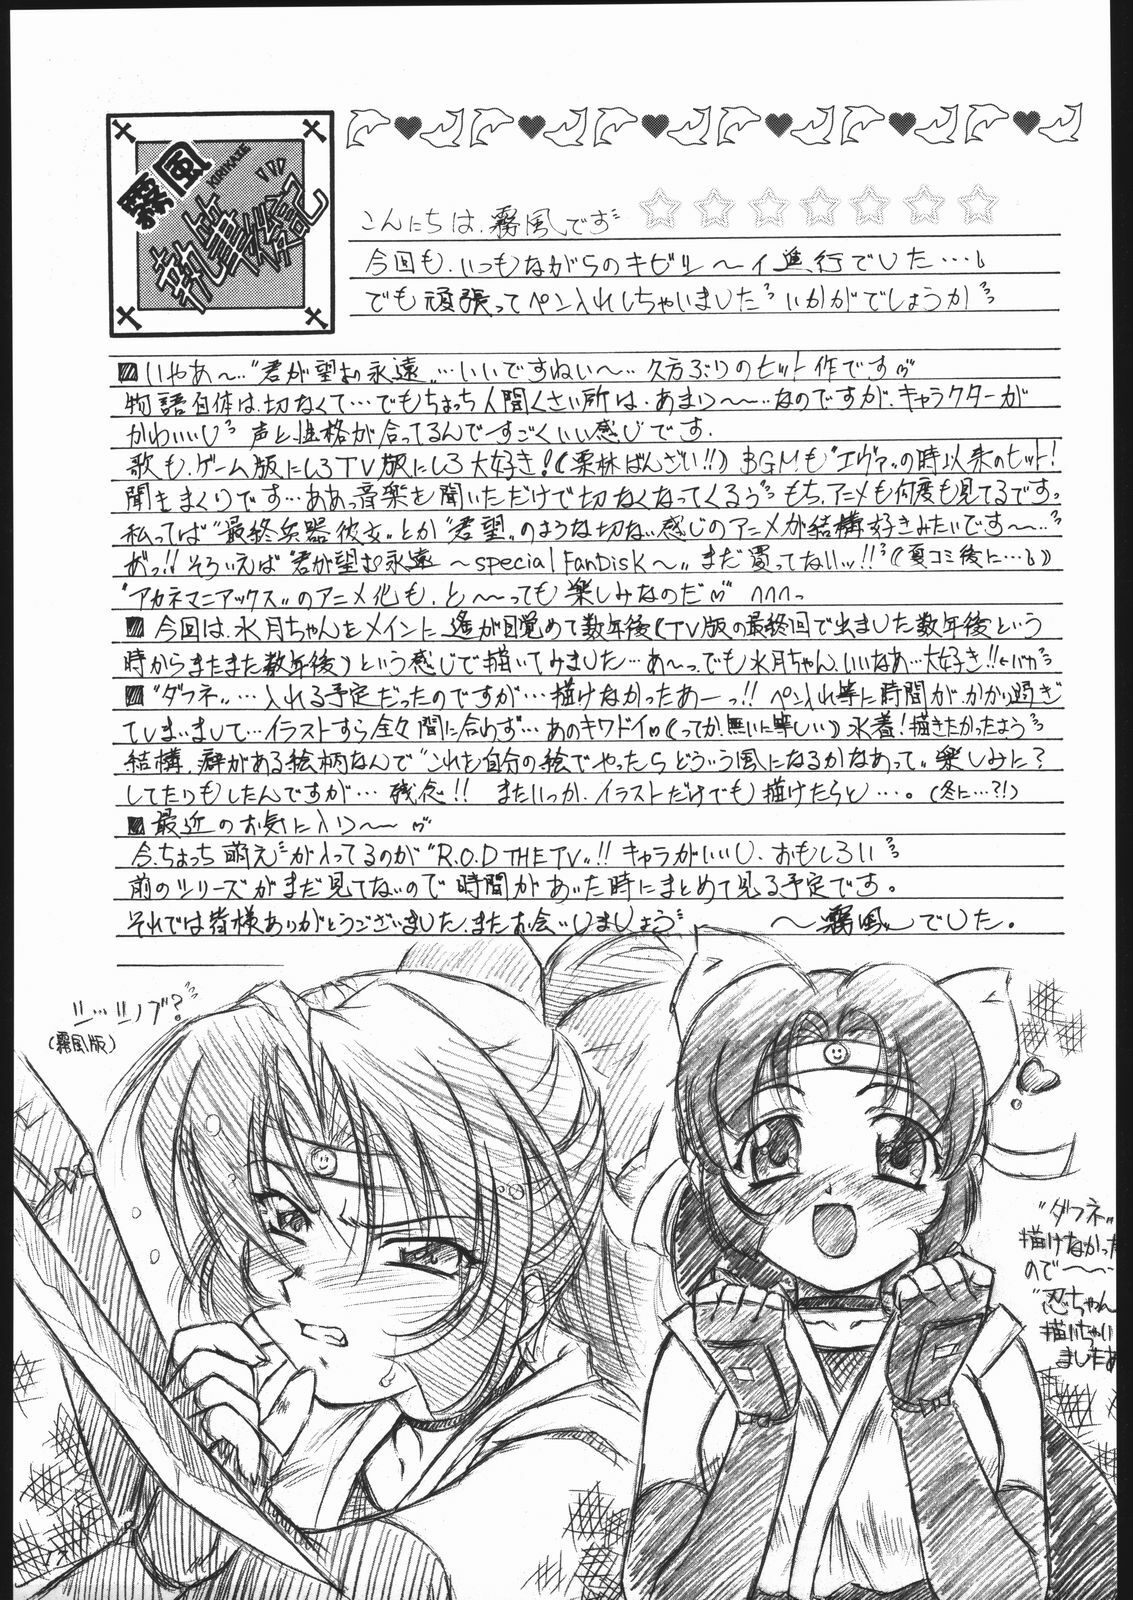 霧風
KIRIKAZE
執筆後記
こんにちは、霧風です
今回も、いつもながらのキビシ～イ進行でした…
でも頑張ってペン入れしちゃいました いかがでしょうか
■いやあ～…"君が望む永遠"…いいですねぃ～…久方ぶりのヒット作です
物語自体は、切なくて…でもちょっち人間くさい所は、あまり～…なのですが、キャラクターが
かわいいし 声と、性格が合ってるんですごくいい感じです。
歌も、ゲーム版にしろTV版にしろ大好き!(栗林ばんざい!!) BGMも"エヴァ"の時以来のヒット!
聞きまくりです…ああっ音楽を聞いただけで切なくなってくるぅ もち、アニメも何度も見てるです。
私ってば"最終兵器彼女"とか"君望"のような切ない感じのアニメが結構好きみたいです～…
あっ!!そういえば"君が望む永遠～special FanDisk～"まだ買ってないッ!!(夏コミ後に…)
"アカネマニアックス"のアニメ化も、と～っても楽しみなのだ
■今回は、水月ちゃんをメインに遙が目覚めて数年後(TV版の最終回で出ました数年後という
時からまたまた数年後)という感じで描いてみました…あ～っ、でも水月ちゃん、いいなあ…大好き!!←バカ
■"ダフネ"…入れる予定だったのですが…描けなかったあーっ!! ペン入れ等に時間が、かかり過ぎ
てしまいまして…イラストすら全々間に合わず…あのキワドイ(ってか、無いに等しい)水着!描きたかったよう
結構、癖がある絵柄なんで"これを自分の絵でやったらどういう風になるかなあって"楽しみに?
してたりもしたんですが…残念!! またいつか、イラストだけでも描けたらと…。(冬に…?!)
■最近のお気に入り～
今、ちょっち萌えが入ってるのが"R.O.D THE TV"!! キャラがいいし、おもしろい
前のシリーズがまだ見てないので時間があいた時にまとめて見る予定です。
それでは皆様ありがとうございました、またお会いしましょう ～霧風でした。
(霧風版)
"ダフネ"
描けなかった
ので～…
"忍ちゃん
描いちゃい
ましたあ